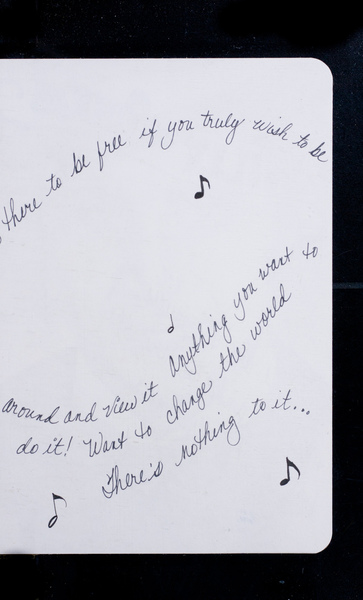 there to be free if you truly wish to be
around and view it anything you want to
do it! Want to change the world
There's nothing to it...